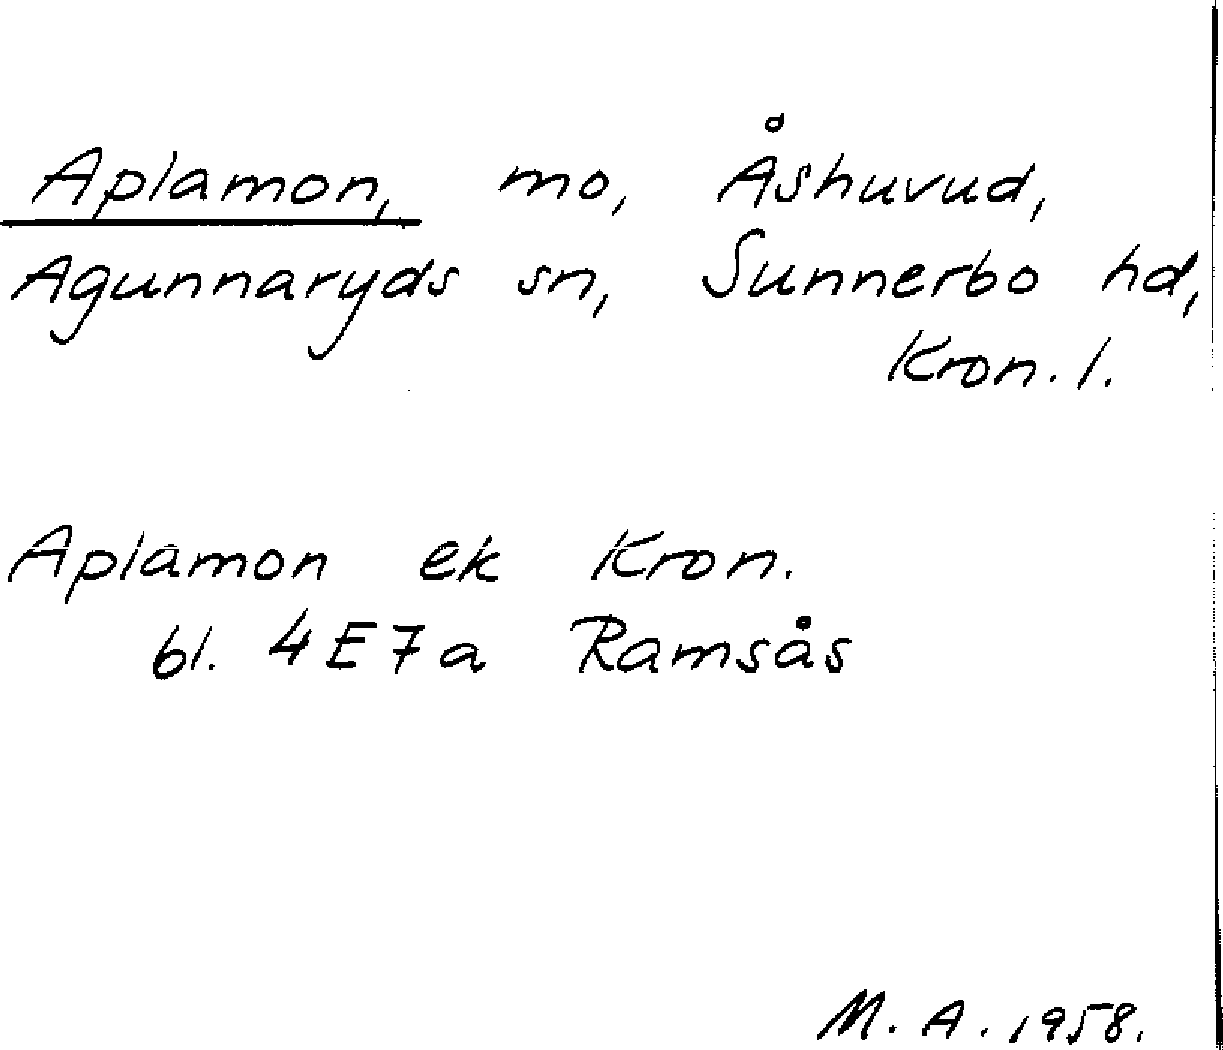 Aplamon, mo, Åshuvud,
Agunnaryds sn, Sunnerbo hd,
Kron. l.
Aplamon ek Kron.
bl. 4E7a Ramsås
M. A. 1958.